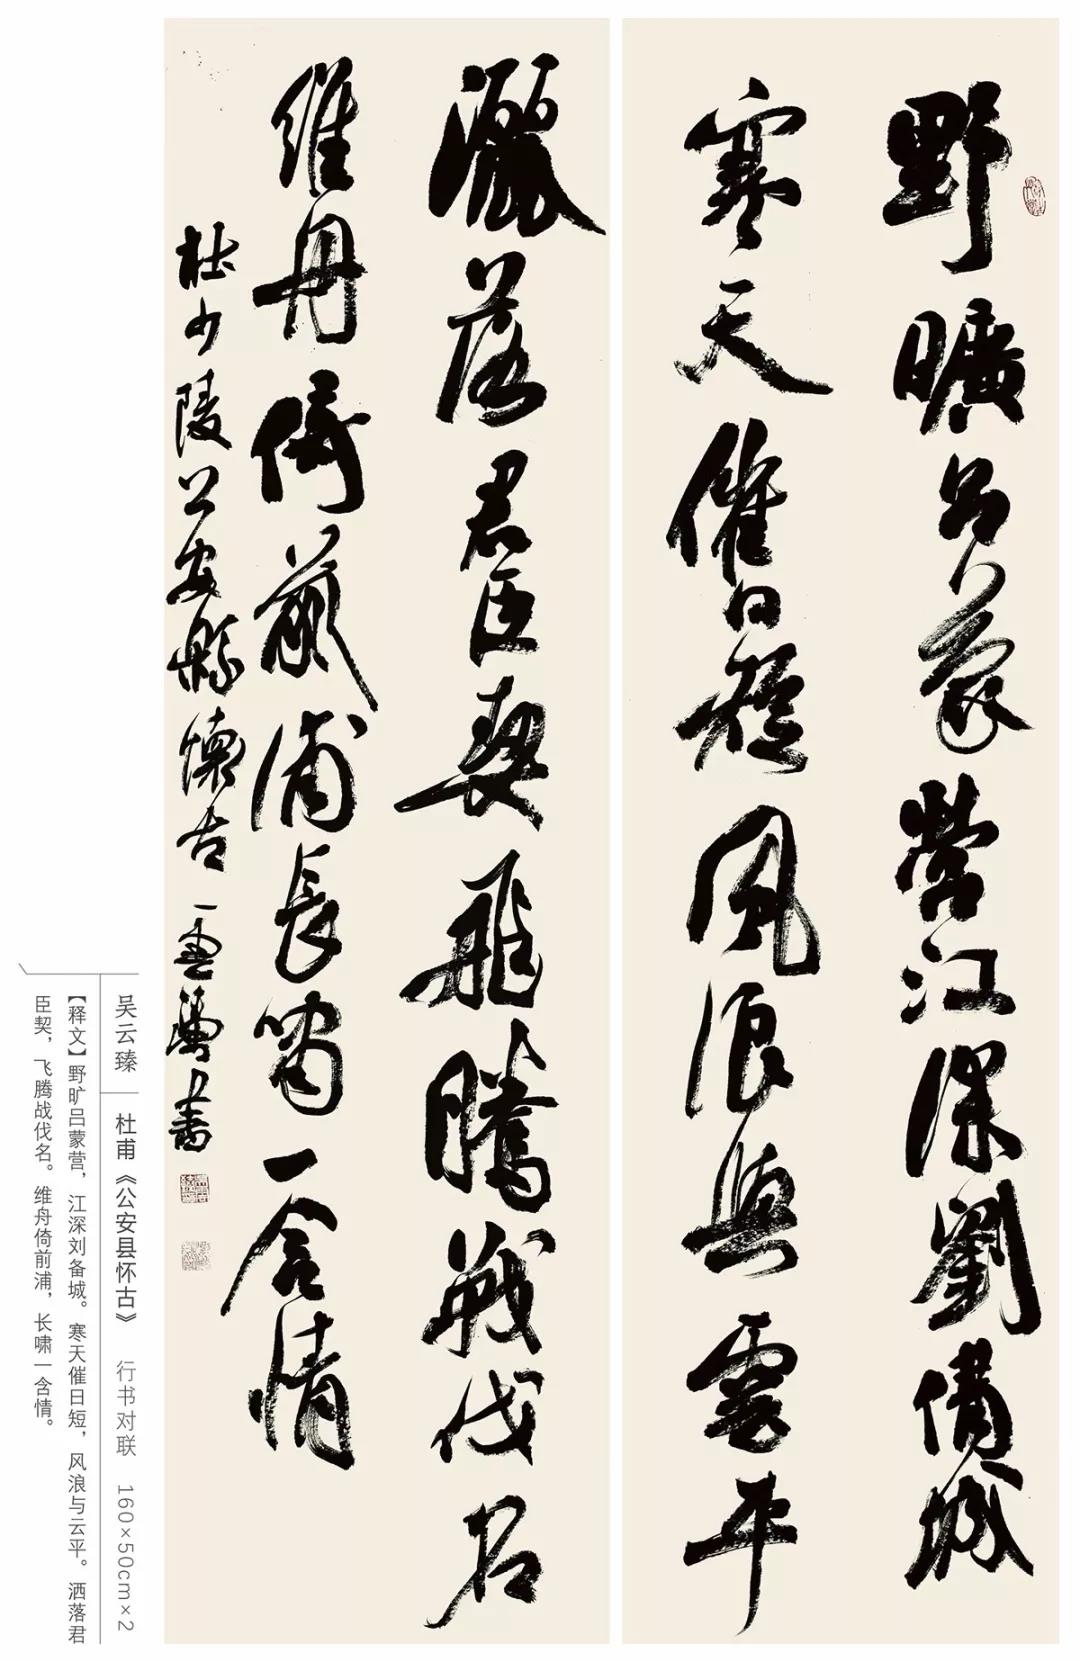 野曠呂蒙營江深劉備城
寒天催日短風浪與雲平
灑落君臣契飛騰戰伐名
維舟倚前浦長嘯一含情
杜少陵公安縣懷古雲臻書
吴云臻 杜甫《公安县怀古》 行书对联 160×50cm×2
【释文】野旷吕蒙营，江深刘备城。寒天催日短，风浪与云平。洒落君
臣契，飞腾战伐名。维舟倚前浦，长啸一含情。